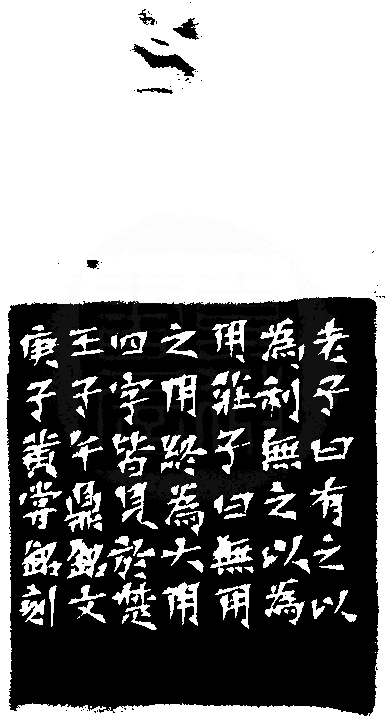 老子曰有之以
為利無之以為
用莊子曰無用
之用終為大用
四字皆見於楚
王子午鼎銘文
庚子黄嘗銘刻